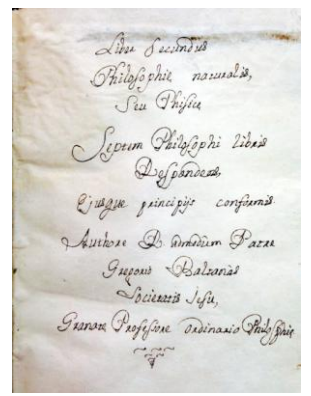 Liber Secundus
Philosophie naturalis,
Seu Physica
Septem Philosophi libris
Respondens,
Ejusque principijs conformis.
Authore R. admodum Patre
Gregorio
Societatis Jesu,
Granate Professore ordinario Philosophie